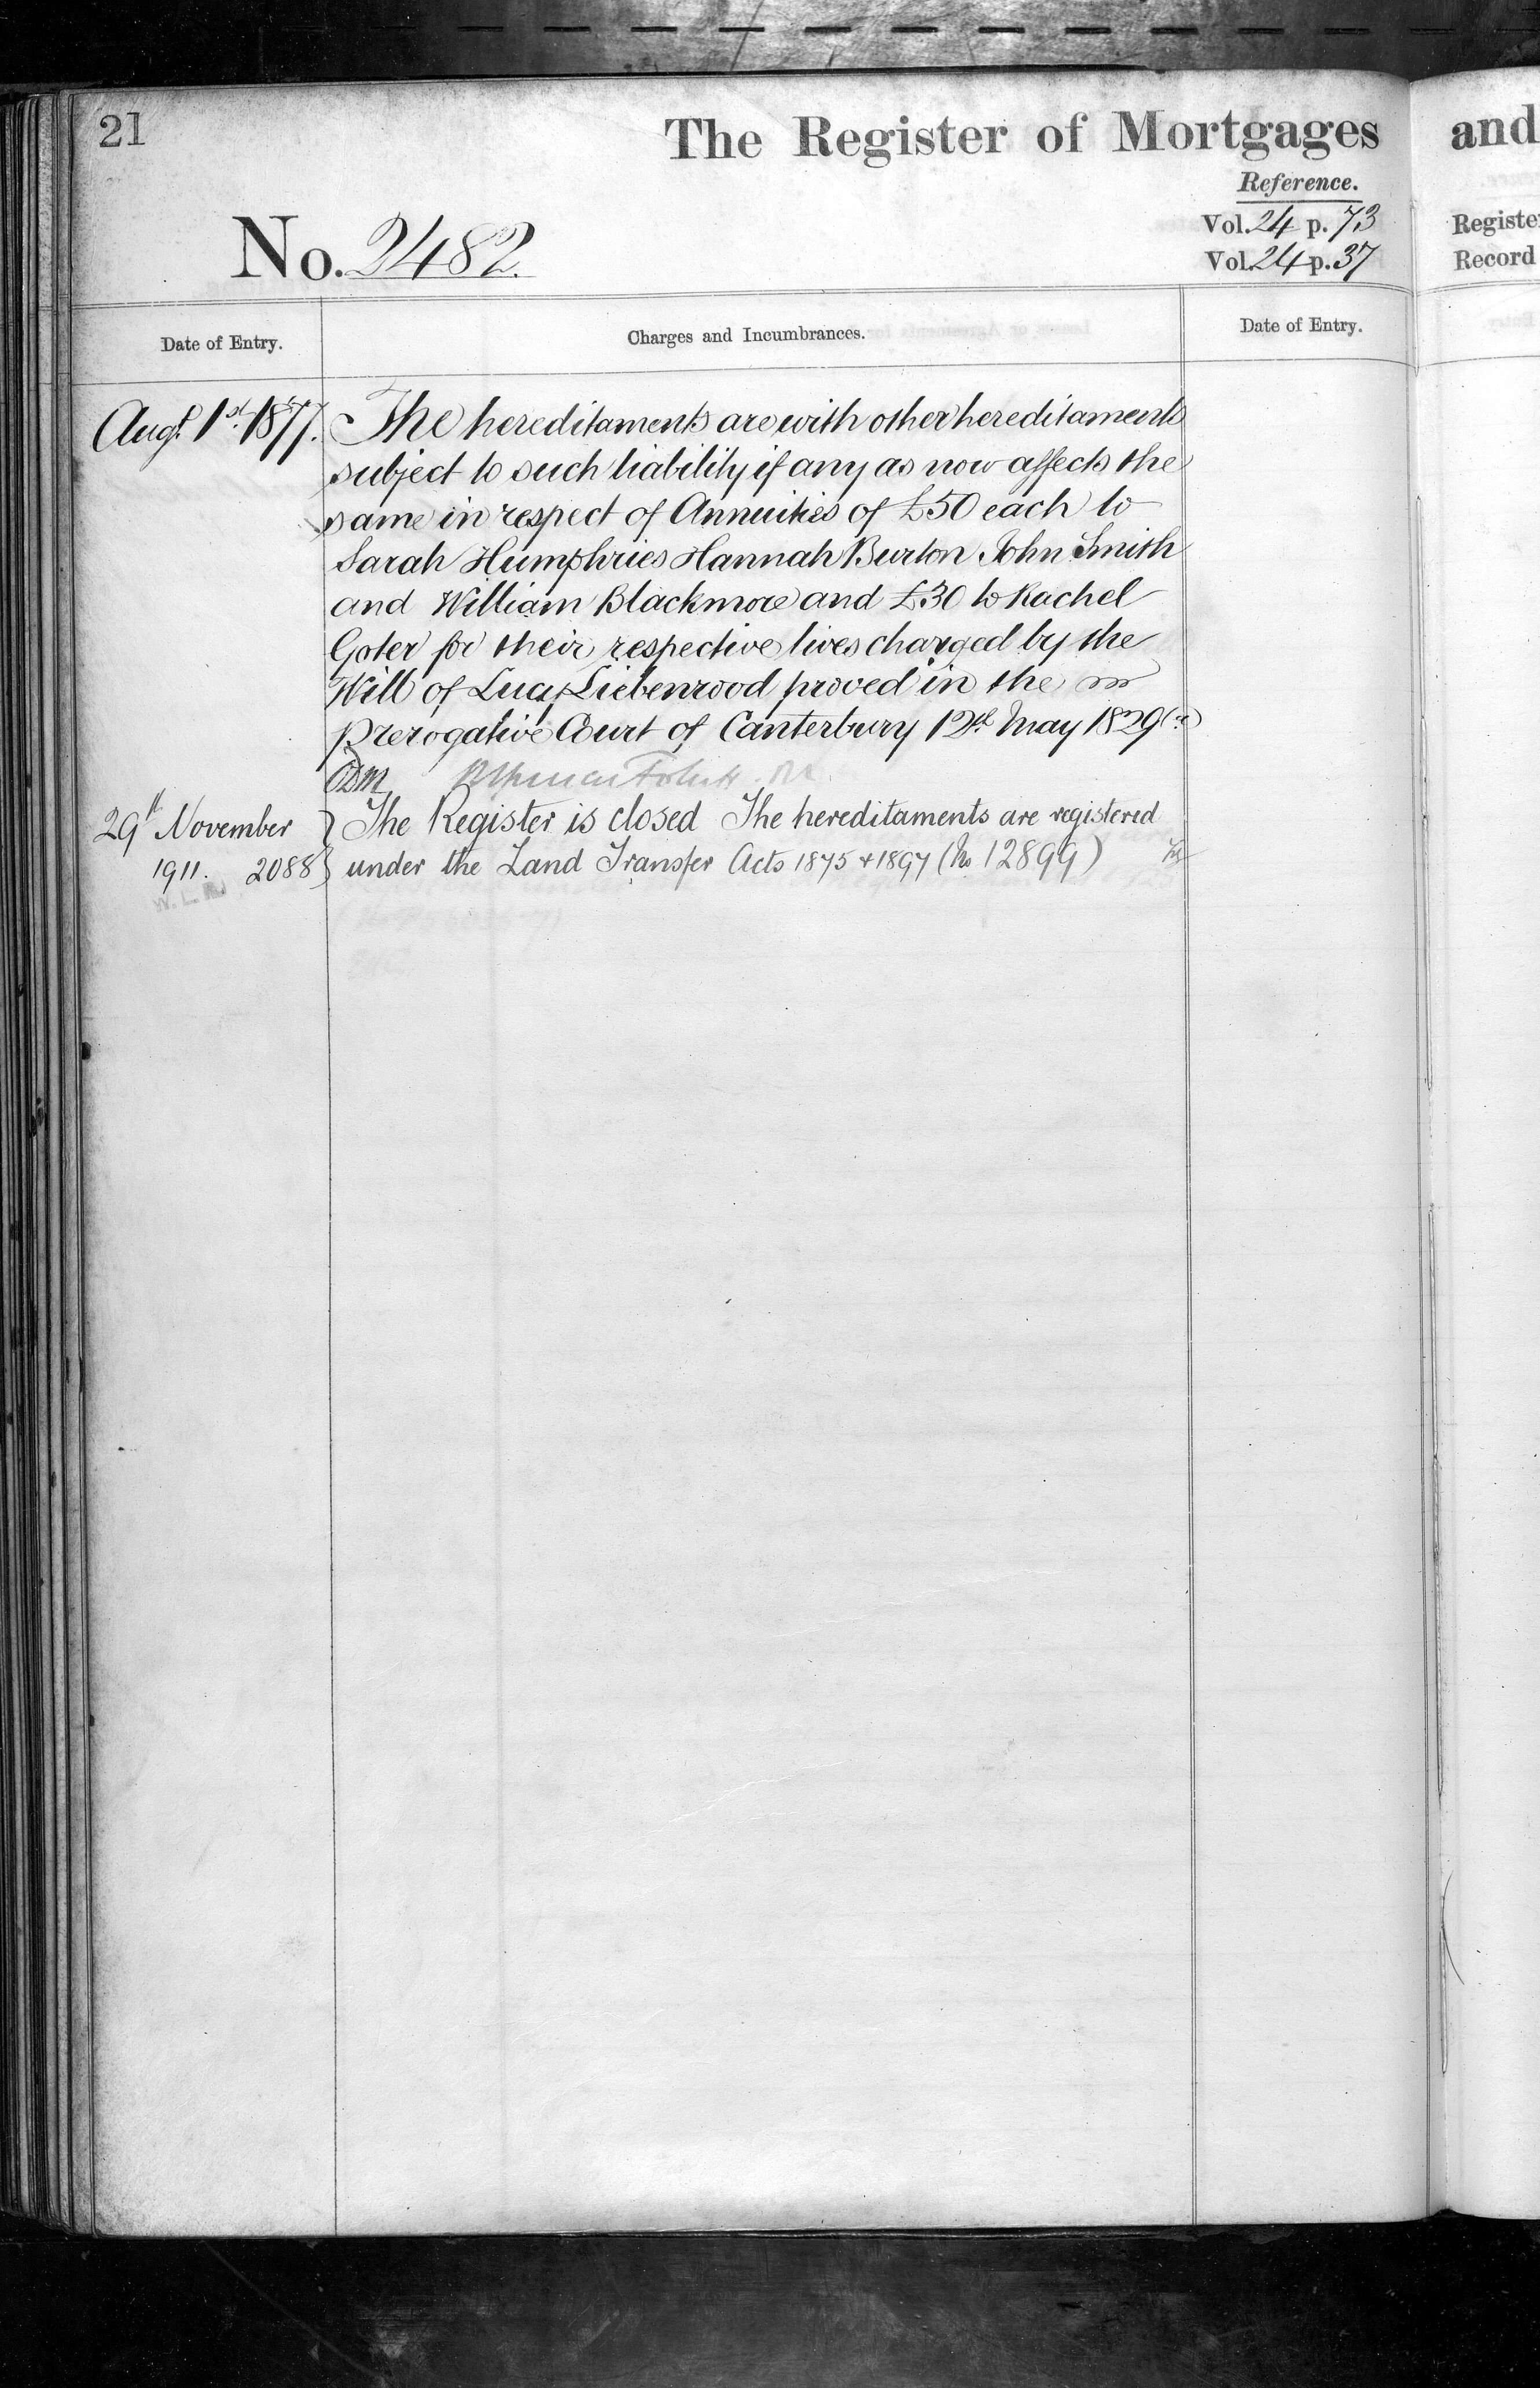 21
The Register of Mortgages
and
Reference.
Vol. 24 p. 73
Vol. 24 p. 37
No. 2482.
Register
Record
Date of Entry.
Charges and Incumbrances.
Date of Entry.
Augt. 1st. 1877.
The hereditaments are with other hereditaments
subject to such liability if any as now affects the
same in respect of Annuities of £50 each to
Sarah Humphries Hannah Burton John Smith
and William Blackmore and £30 to Rachel
Goter for their respective lives charged by the
Will of Lucy Liebenrood proved in the
Prerogative Court of Canterbury 12th May 1829
29th November
1911. 2088
The Register is closed The hereditaments are registered
under the Land Transfer Acts 1875 & 1897 (No 12899)